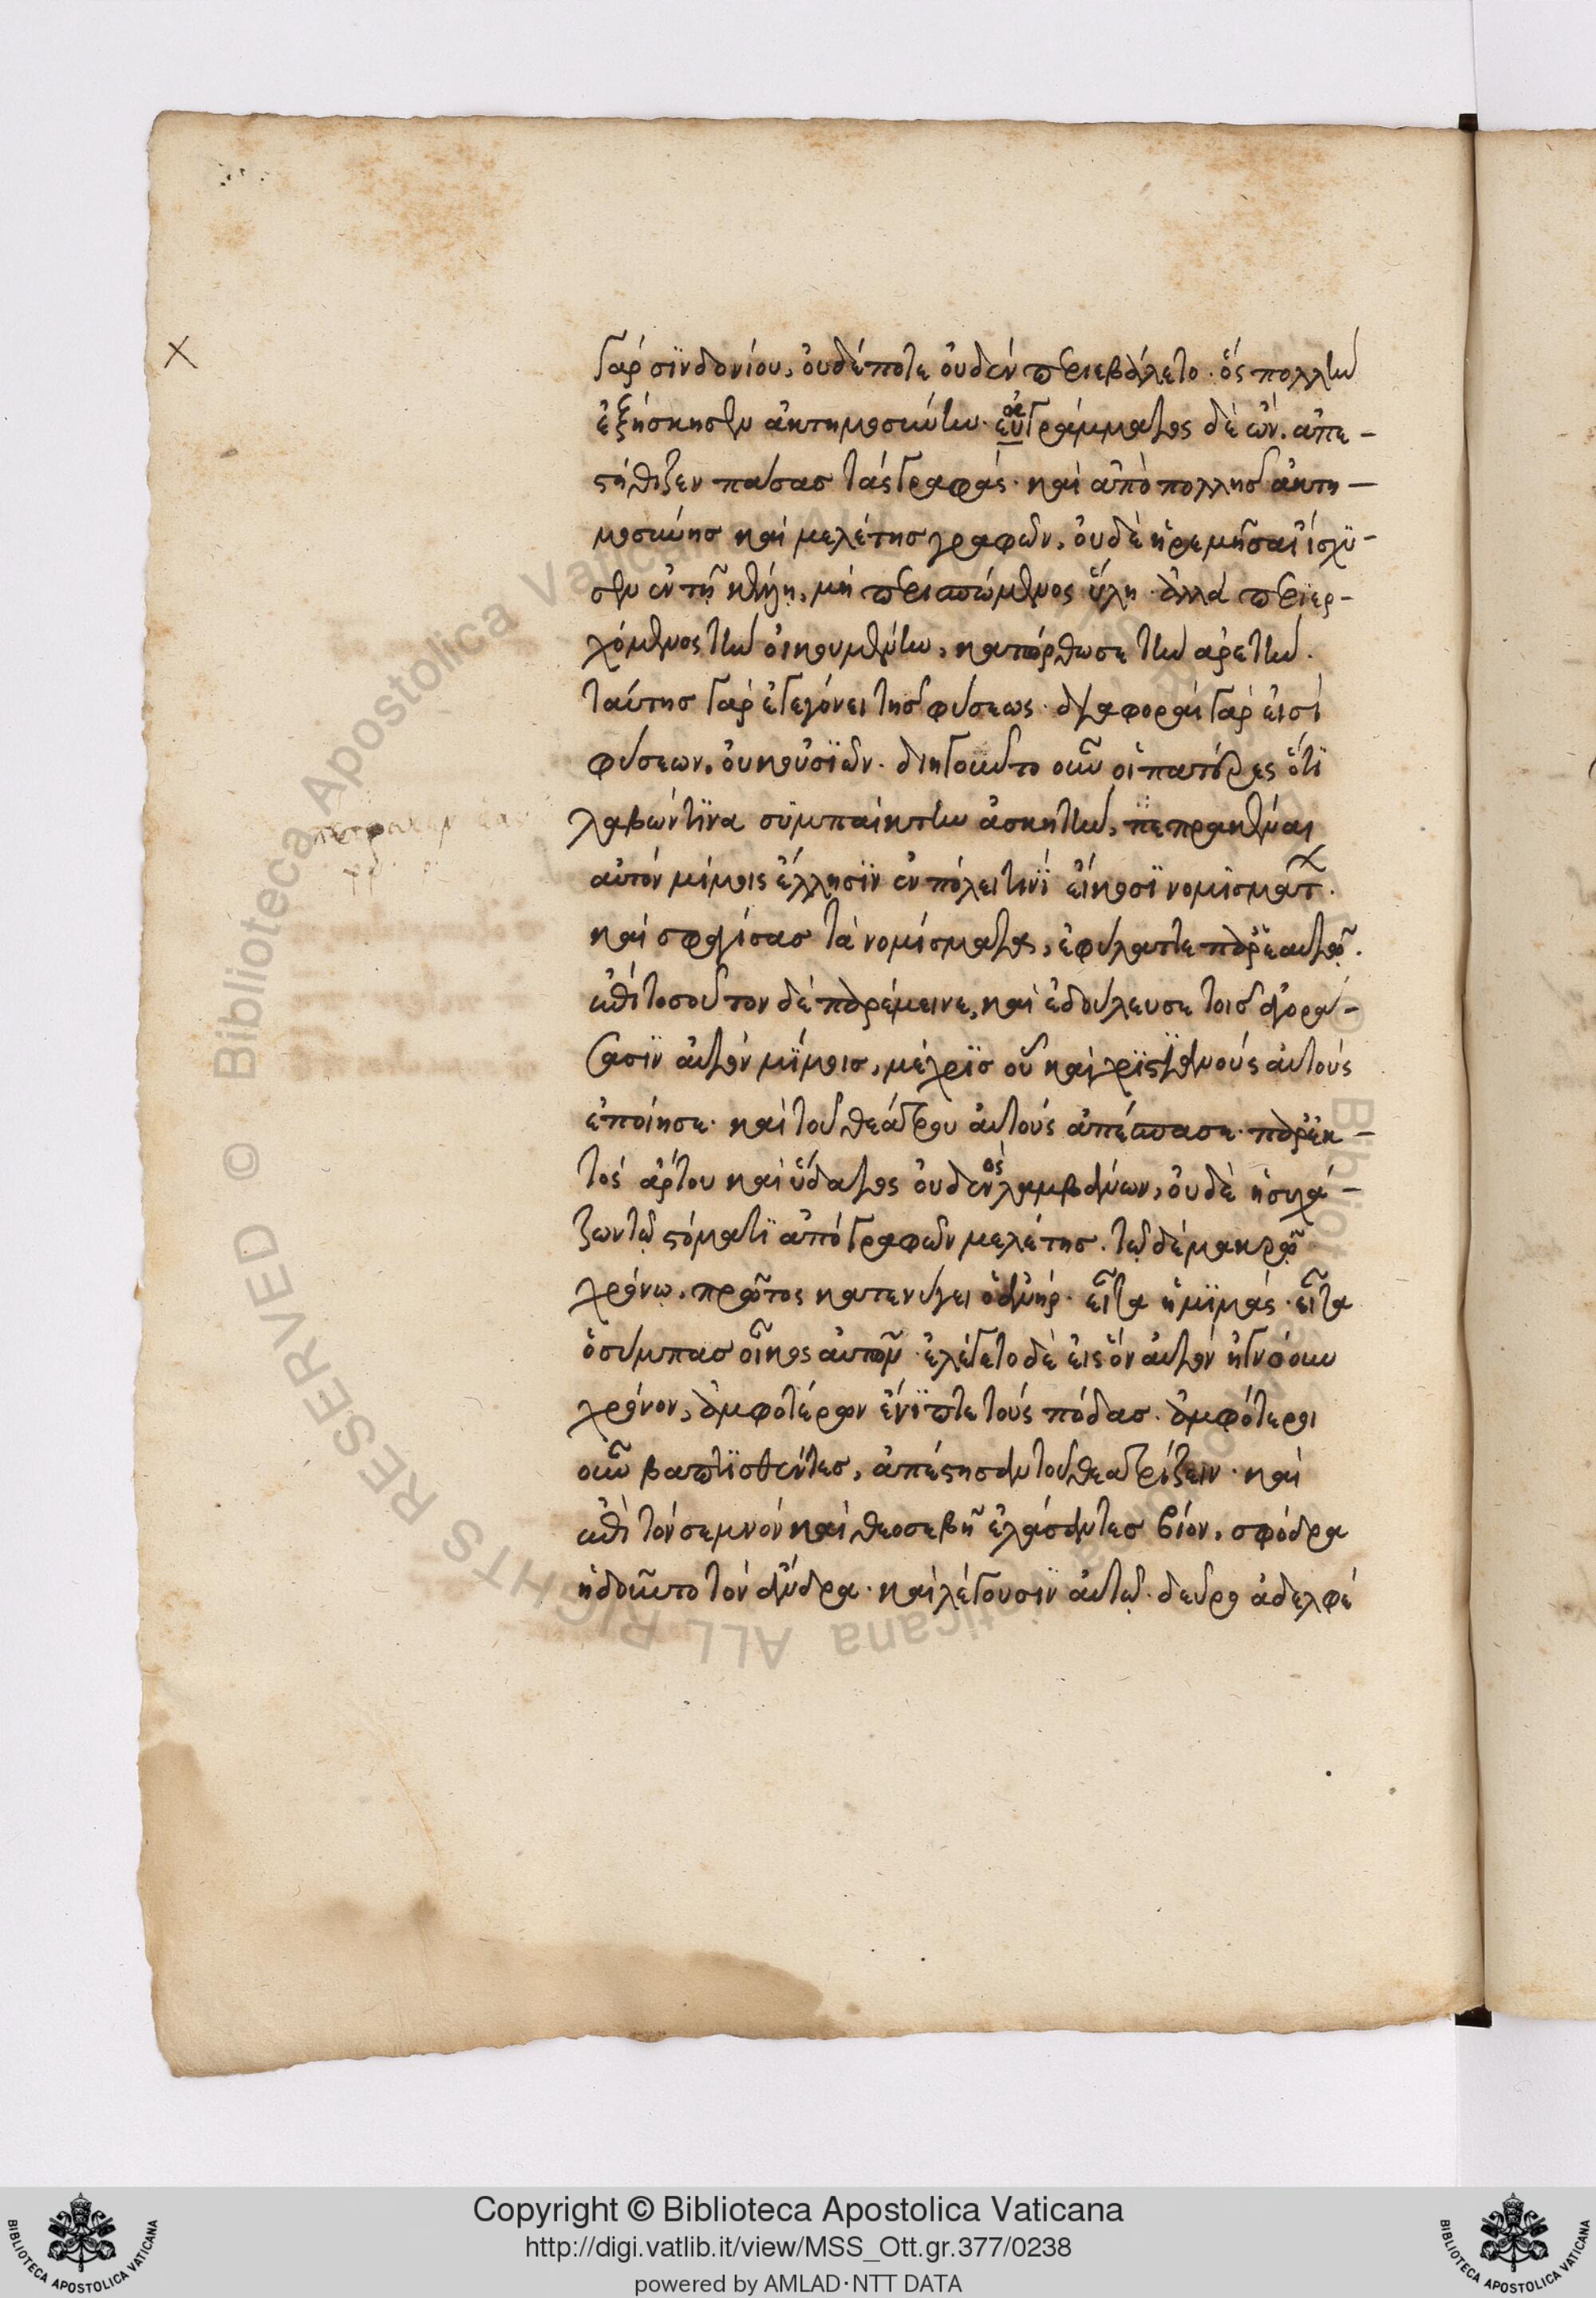 γὰρ σϊνδονίου, οὐδέποτε οὐδὲν περιεβάλετο· ὃς πολλὴν
ἐξήσκησεν ἀκτημοσύνην· εὐγράμματος δὲ ὢν, ἀπε-
στήθιζεν πάσας τὰς γραφάς· καὶ ἀπὸ πολλῆς ἀκτη-
μοσύνης καὶ μελέτης γραφῶν, οὐδὲ ἠρεμῆσαι ἴσχϋ-
σεν ἐν τῇ κέλλῃ, μὴ περισπώμενος ὕλῃ· ἀλλὰ περϊερ-
χόμενος τὴν οἰκουμένην, κατώρθωσε τὴν ἀρετὴν.
ταύτης γὰρ ἐγεγόνει τῆς φύσεως· διαφοραὶ γὰρ εἰσὶ
φύσεων, οὐκ οὐσϊῶν· διηγοῦντο οὖν οἱ πατέρες ὅτϊ
λαβών τϊνα συμπαίκτην ἀσκητὴν, πέπρακεν
αὐτὸν μίμοις ἕλλησϊν ἐν πόλει τινϊ εἴκοσϊ νομισμάτ.
καὶ σφαγίσας τὰ νομίσματα, ἐφύλαττε παρ' ἑαυτῷ.
ἐπὶ τοσοῦτον δὲ παρέμεινε, καὶ ἐδούλευσε τοῖς ἀγορά-
σασϊν αὐτὸν μϊμοις, μέχρϊς οὗ καὶ χρϊστιανοὺς αὐτοὺς
ἐποίησε· καὶ τοῦ θεάτρου αὐτοὺς ἀπέσπασε· παρὲκ-
τὸς ἄρτου καὶ ὕδατος οὐδενὸς λαμβάνων, οὐδὲ ἡσυχά-
ζων τῷ στόματϊ ἀπὸ γραφῶν μελέτης. τῷ δὲ μακρῷ
χρόνῳ, πρῶτος κατενύγει ὁ ἀνήρ· εἶτα ἡ μϊμάς· εἶτα
ὁ σύμπας οἶκος αὐτῶν· ἐλέγετο δὲ εἰς ὃν αὐτὸν ἠγνόουν
χρόνον, ἀμφοτέρων ἔνϊπτε τοὺς πόδας. ἀμφότεροι
οὖν βαπτϊσθέντες, ἀπέστησαν τοῦ θεατρίζειν· καὶ
ἐπὶ τὸν σεμνὸν καὶ θεοσεβῆ ἐλάσαντες βίον, σφόδρα
ᾐδοῦντο τὸν ἄνδρα· καὶ λέγουσιν αὐτῷ· δεῦρο ἀδελφὲ
Copyright © Biblioteca Apostolica Vaticana
http://digi.vatlib.it/view/MSS_Ott.gr.377/0238
powered by AMLAD·NTT DATA